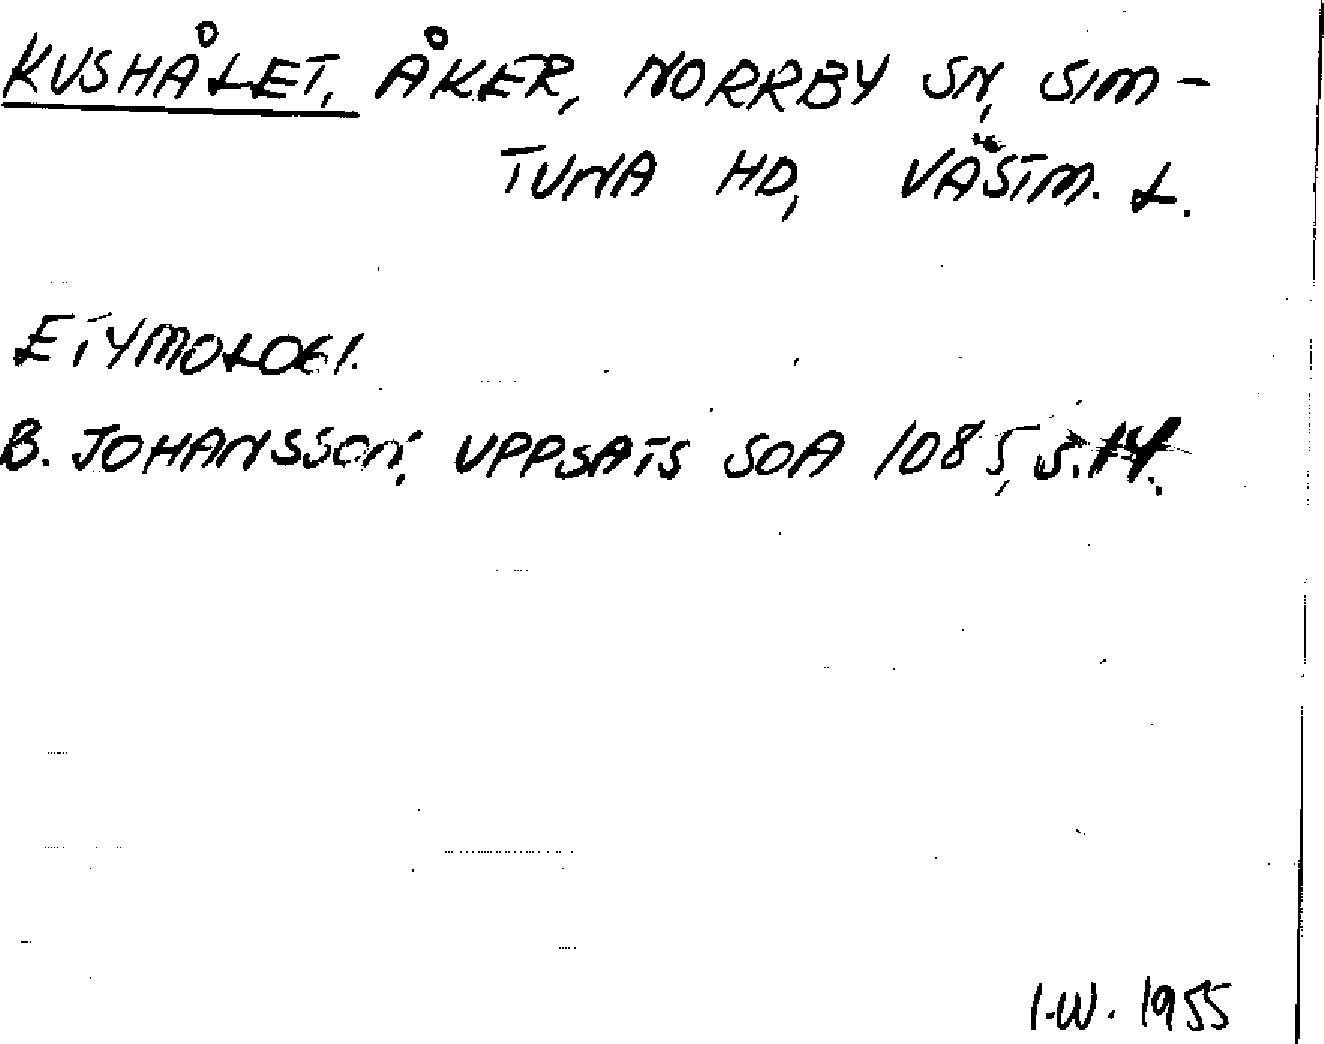 KUSHÅLET, ÅKER, NORRBY SN, SIM-
TUNA HD, VÄSTM. L.
ETYMOLOGI.
B. JOHANSSON, UPPSATS SOA 1085, S. 14.
I.W. 1955